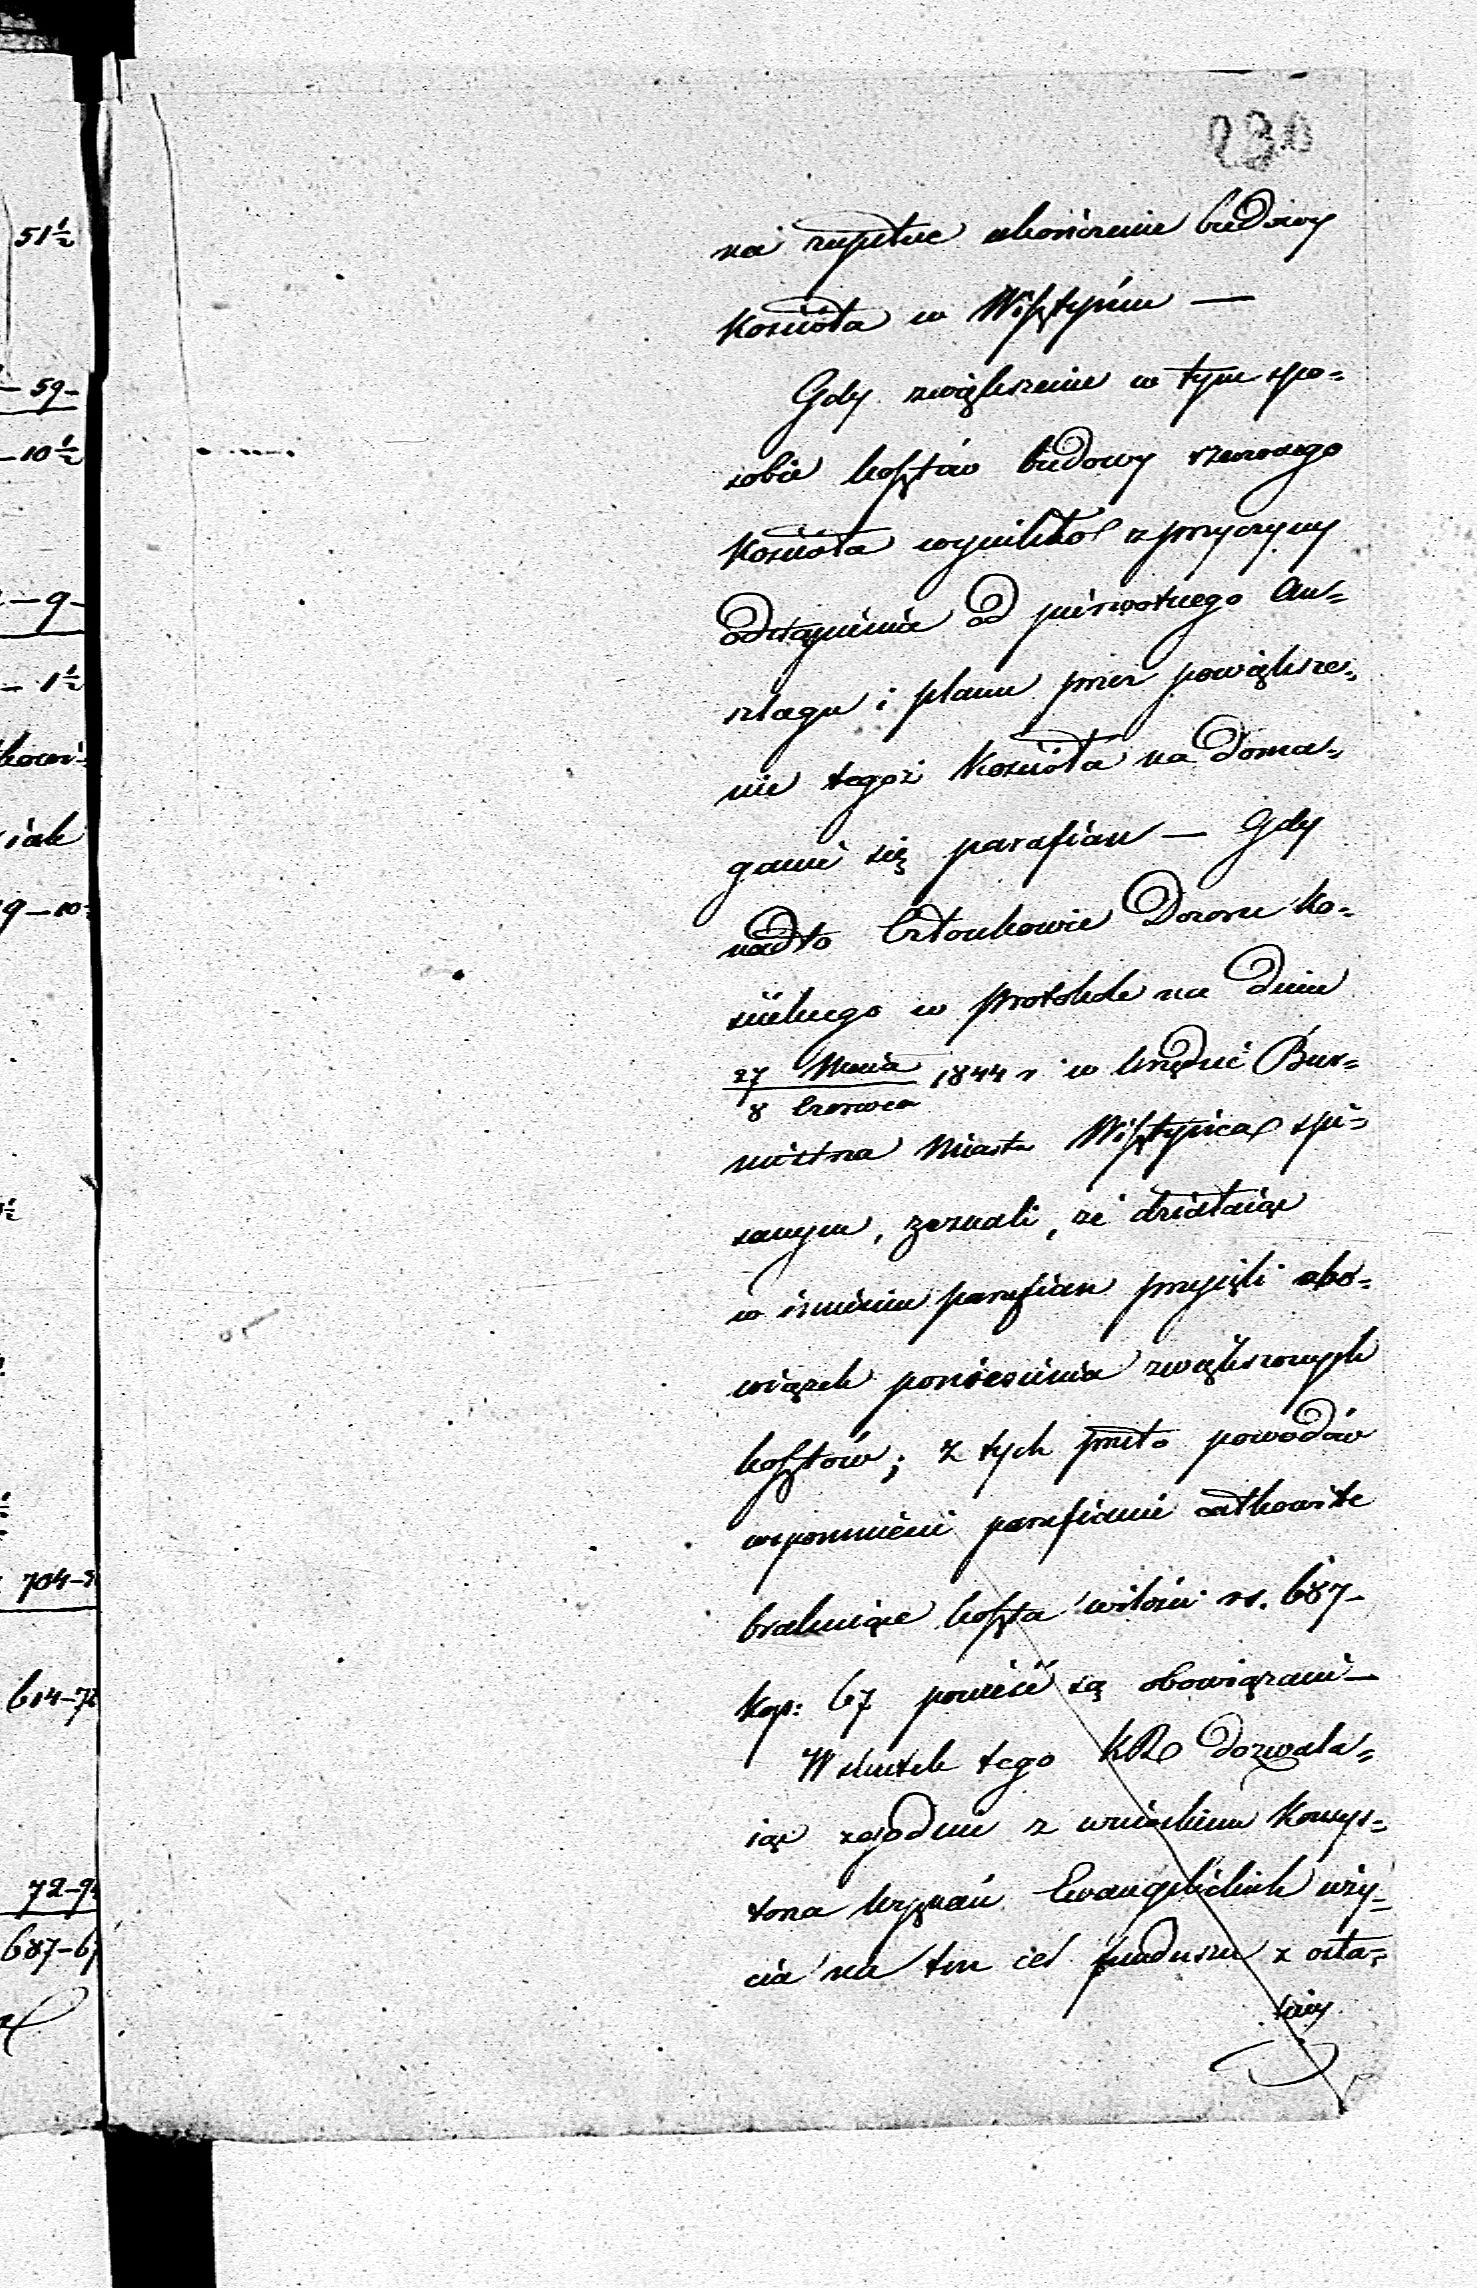 230
na zupełne ukończenie budowy
Kościoła w Wisztyńcu —
Gdy zwiększenie w tym spo=
sobie kosztów budowy rzeczonego
Kościoła wynikło z przyczyny
odstąpienia od pierwotnego An=
szlagu i planu przez powiększe=
nie tegoż Kościoła na doma=
ganie się parafian — Gdy
nadto Członkowie Dozoru Ko=
ścielnego w Protokole na dniu
27 Maia / 8 Czerwca 1844 r w Urzędzie Bur=
mistrza Miasta Wisztyńca spi=
sanym, zeznali, że działaiąc
w imieniu parafian przyjęli obo=
wiązek poniesienia zwiększonych
kosztów; z tych przeto powodów
wspomnieni parafianie całkowite
brakuiące koszta w ilości rs. 687-
kop: 67 ponieść są obowiązani —
W skutek tego KR dozwala=
iąc zgodnie z wnioskiem Konsys=
torza Wyznań Ewangelickich uży=
cia na ten cel funduszu z osta=
tniey
51½
— 59-
— 10½
— 9-
— 1½
iak
9 — 10
704-
614-72
72-9
687-6